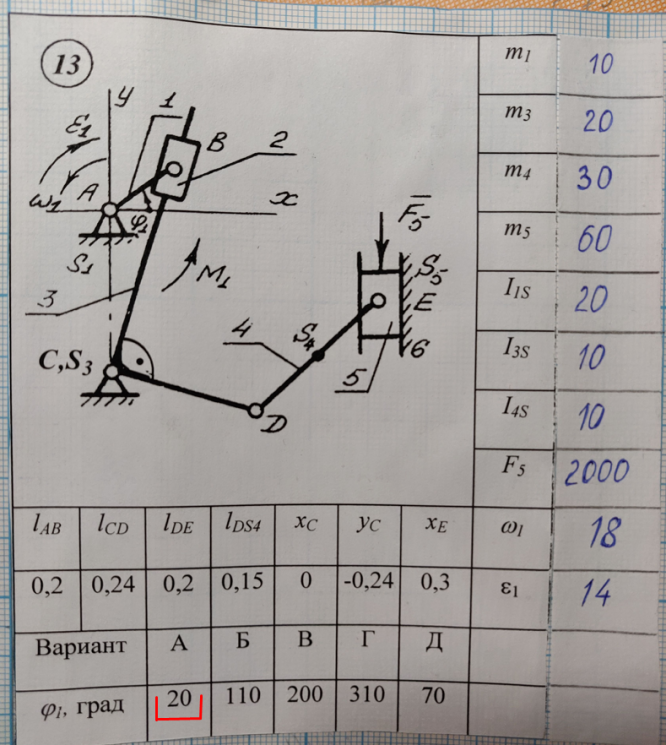 13
y
1
B
2
ε₁
ω₁
A
φ₁
x
S₁
M₁
3
F̅₅
S₅
E
4
S₄
5
6
C,S₃
D
m₁ 10
m₃ 20
m₄ 30
m₅ 60
I₁S 20
I₃S 10
I₄S 10
F₅ 2000
ω₁ 18
ε₁ 14
lAB lCD lDE lDS4 xC yC xE
0,2 0,24 0,2 0,15 0 -0,24 0,3
Вариант А Б В Г Д
φ₁, град 20 110 200 310 70